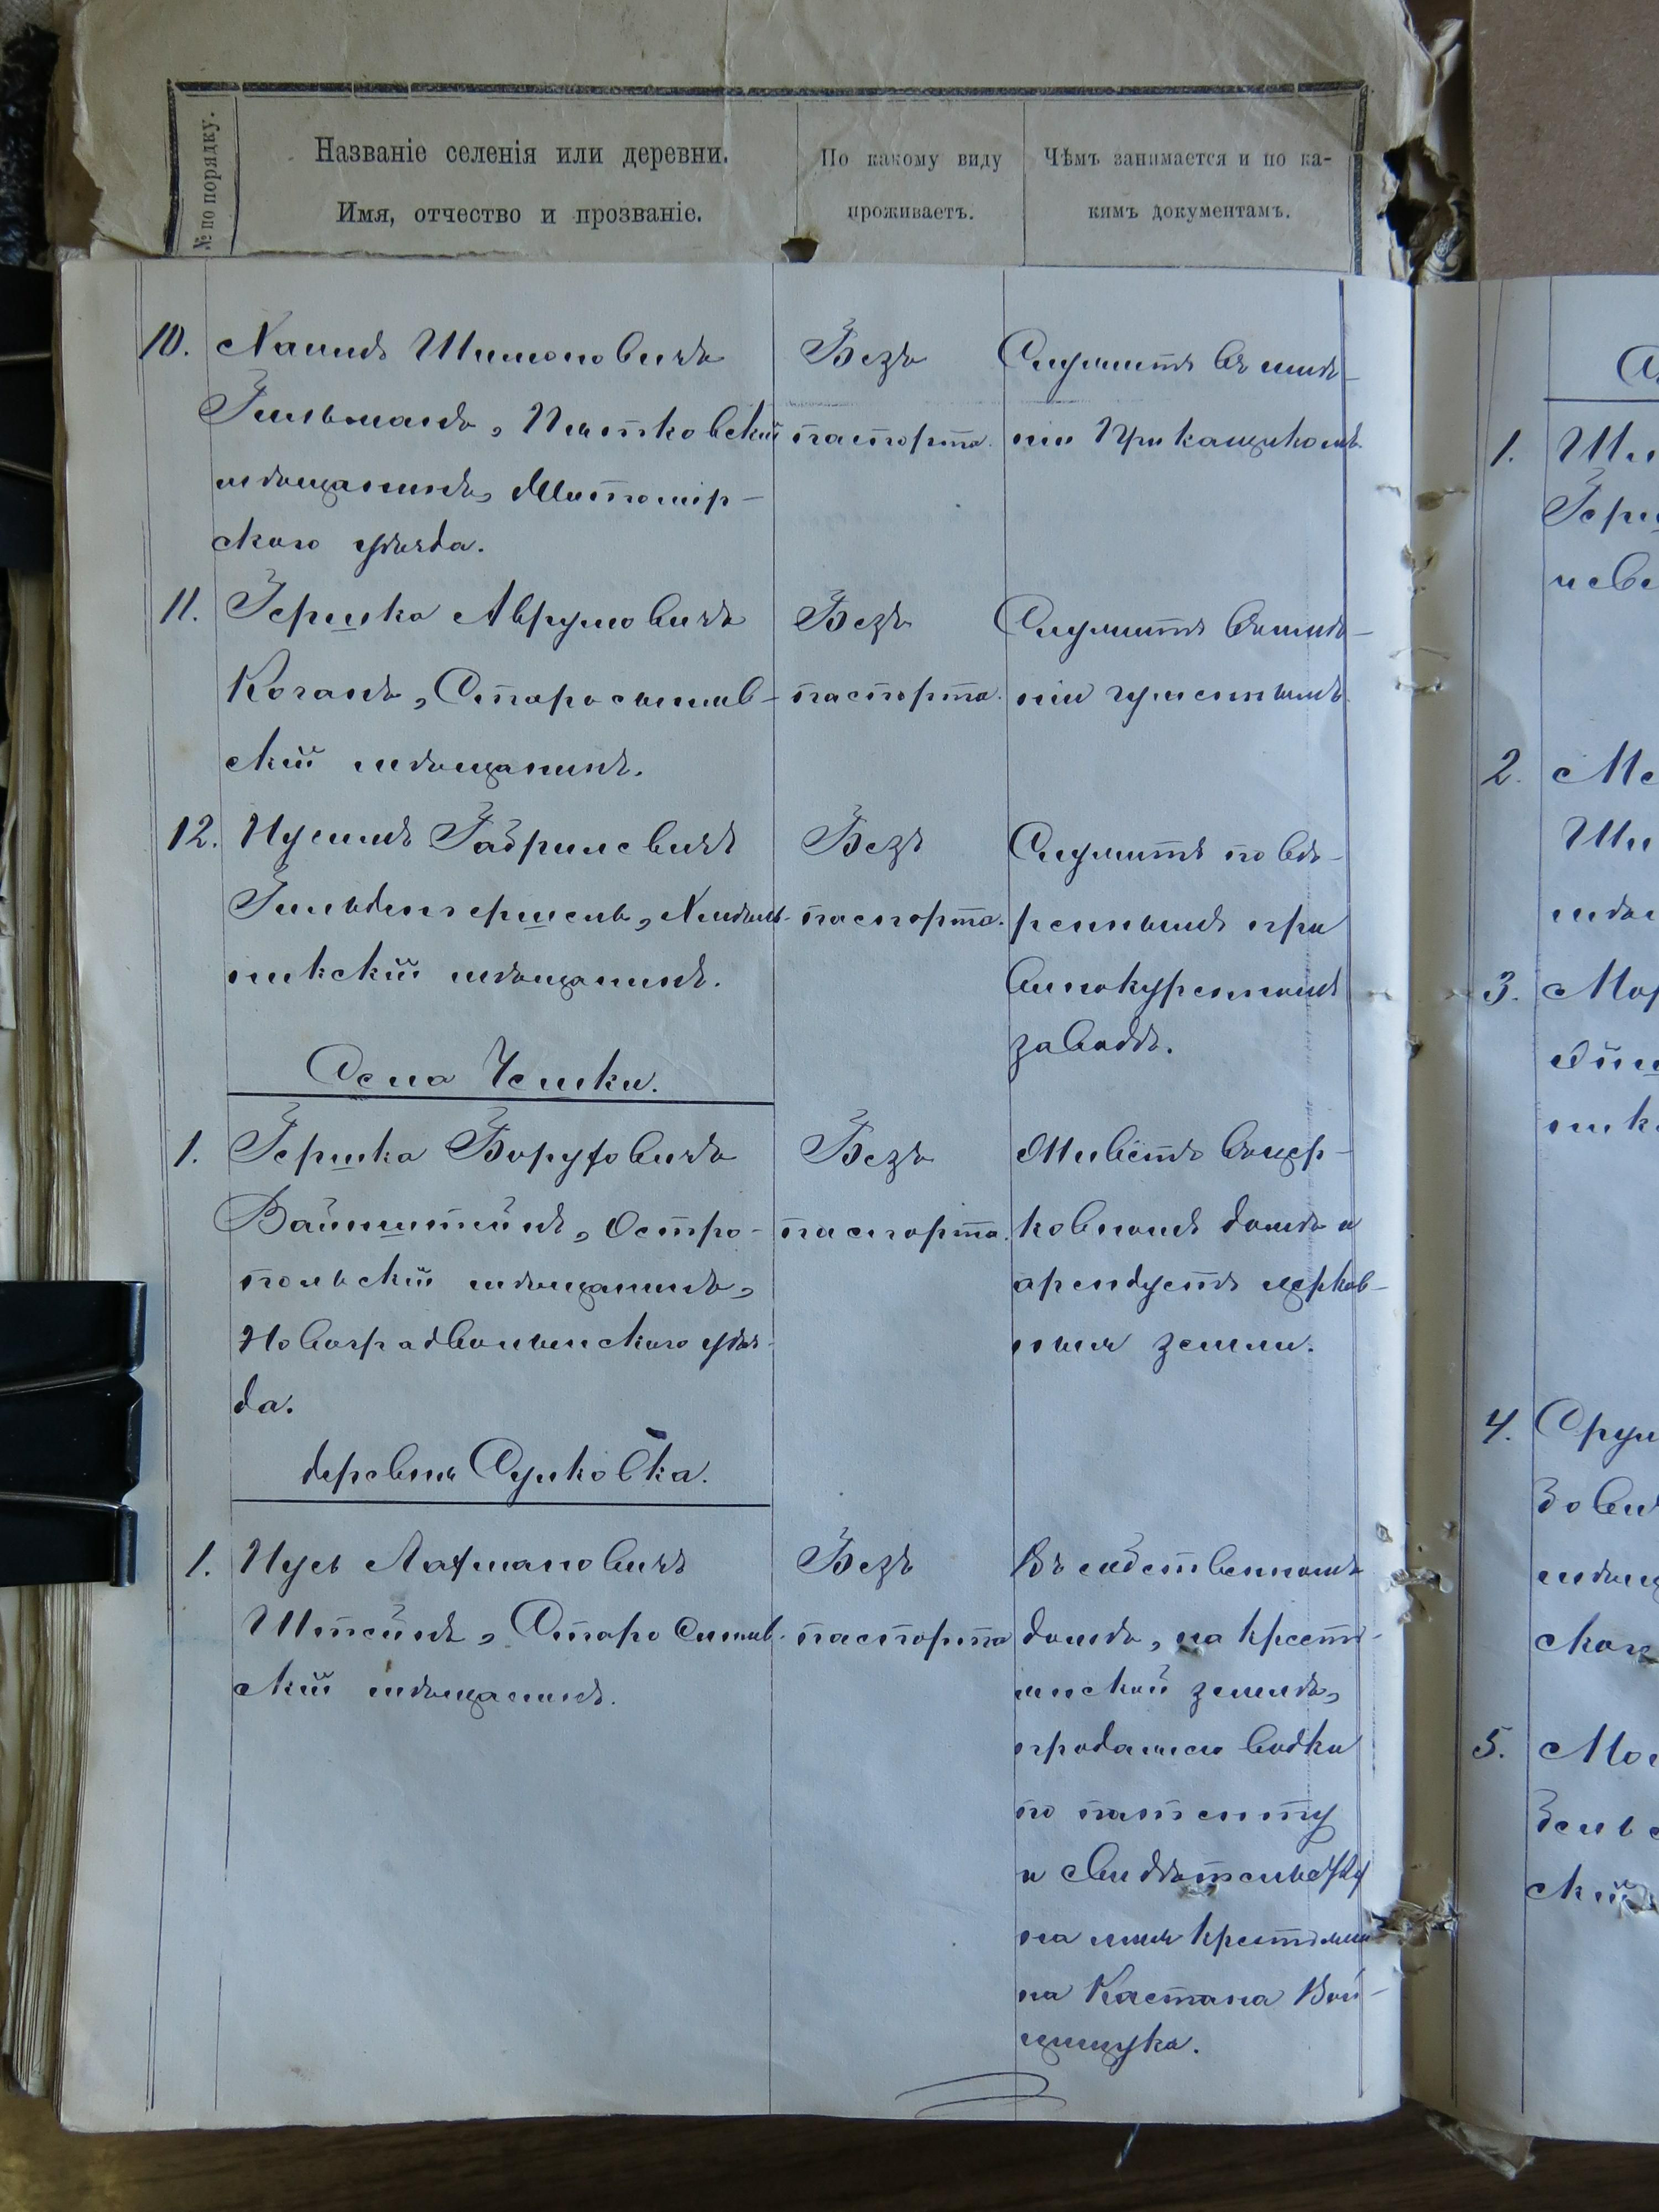 № по порядку.
Названіе селенія или деревни.
Имя, отчество и прозваніе.
По какому виду
проживаетъ.
Чѣмъ занимается и по ка-
кимъ документамъ.
10. Хаимъ Шимоновичъ
Гильманъ, Пятковскій
мѣщанинъ, Житомір-
скаго уѣзда.
Безъ
паспорта.
Служитъ въ имѣ-
ніи Прикащикомъ.
11. Гершко Аврумовичъ
Коганъ, Старосиняв-
скій мѣщанинъ.
Безъ
паспорта.
Служитъ въ имѣ-
ніи
12. Нусимъ Габриловичъ
Хмѣль-
никскій мѣщанинъ.
Безъ
паспорта.
Служитъ повѣ-
реннымъ при
винокуренномъ
заводѣ.
Села Чешки.
1. Гершко Боруховичъ
Вайнштейнъ, Остро-
польскій мѣщанинъ,
Новоградволынскаго уѣз-
да.
Безъ
паспорта.
Живетъ въ цер-
ковномъ домѣ и
арендуетъ церков-
ныя земли.
деревня Сулковка.
1. Нусь Лахмановичъ
Штейнъ, Старосиняв-
скій мѣщанинъ.
Безъ
паспорта
Въ собственномъ
домѣ, на кресть-
янской землѣ,
продажею водки
по патенту
и свидѣтельству
на имя крестьяни-
на Касіана Вой-
щишука.
1.
2.
3.
4.
5.